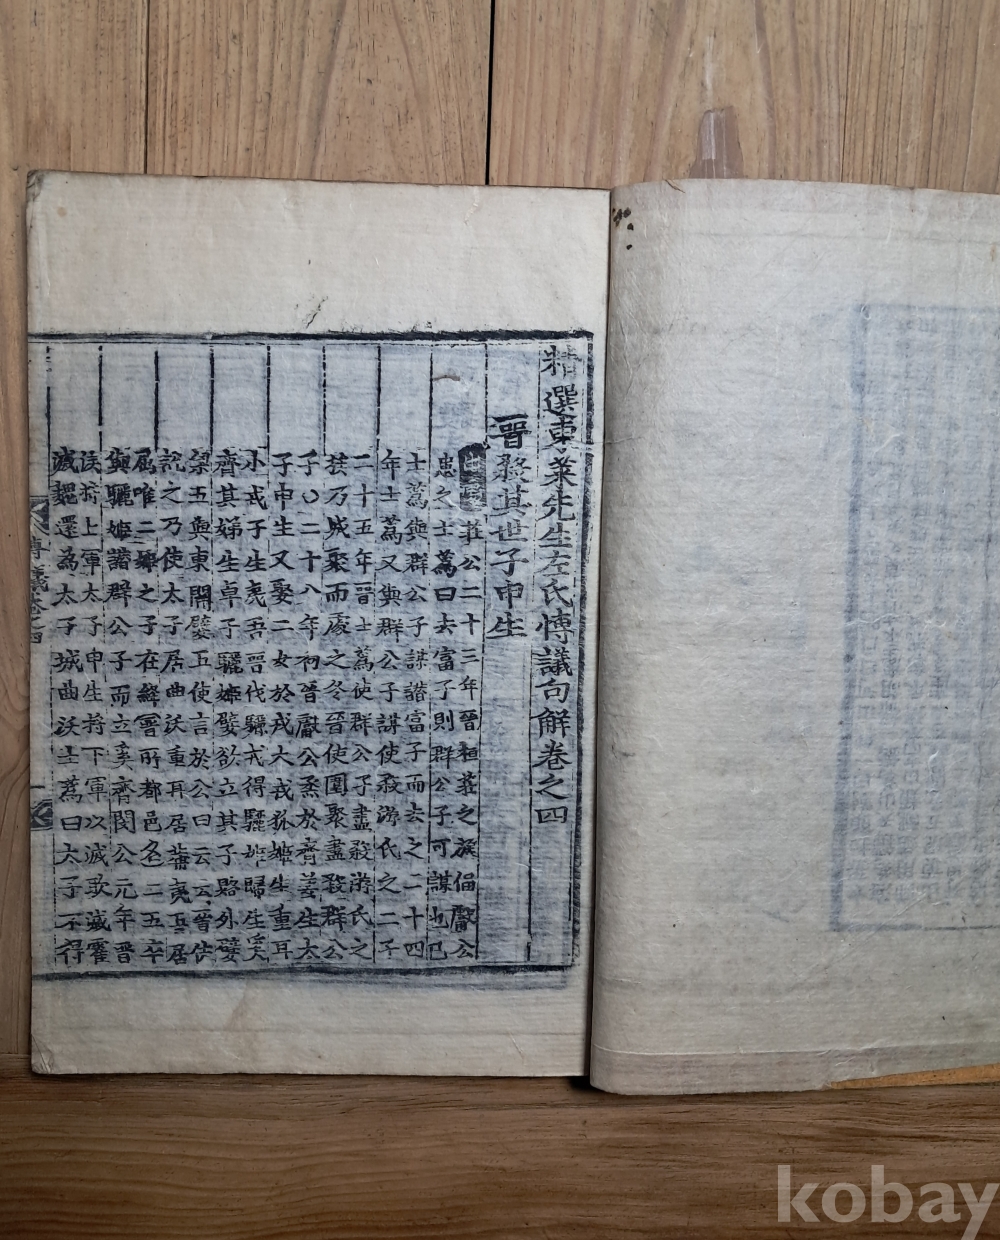 精選東萊先生左氏博議句解卷之四
晉殺其世子申生
莊公二十三年晉桓莊之族偪獻公
患之士蔿曰去富子則群公子可謀也已
士蔿與群公子謀譖富子而去之二十四
年士蔿又與群公子謀使殺游氏之二子
二十五年晉士蔿使群公子盡殺游氏之
族乃城聚而處之冬晉使圍聚盡殺群公
子〇二十八年初晉獻公烝於齊姜生太
子申生又娶二女於戎大戎狐姬生重耳
小戎子生夷吾晉伐驪戎得驪姬歸生奚
齊其娣生卓子驪姬嬖欲立其子賂外嬖
梁五與東關嬖五使言於公曰云云晉侯
說之乃使太子居曲沃重耳居蒲夷吾居
屈唯二姬之子在絳晉所都邑名二五卒
與驪姬譖群公子而立奚齊閔公元年晉
侯將上軍太子申生將下軍以滅耿滅霍
滅魏還為太子城曲沃士蔿曰太子不得
kobay